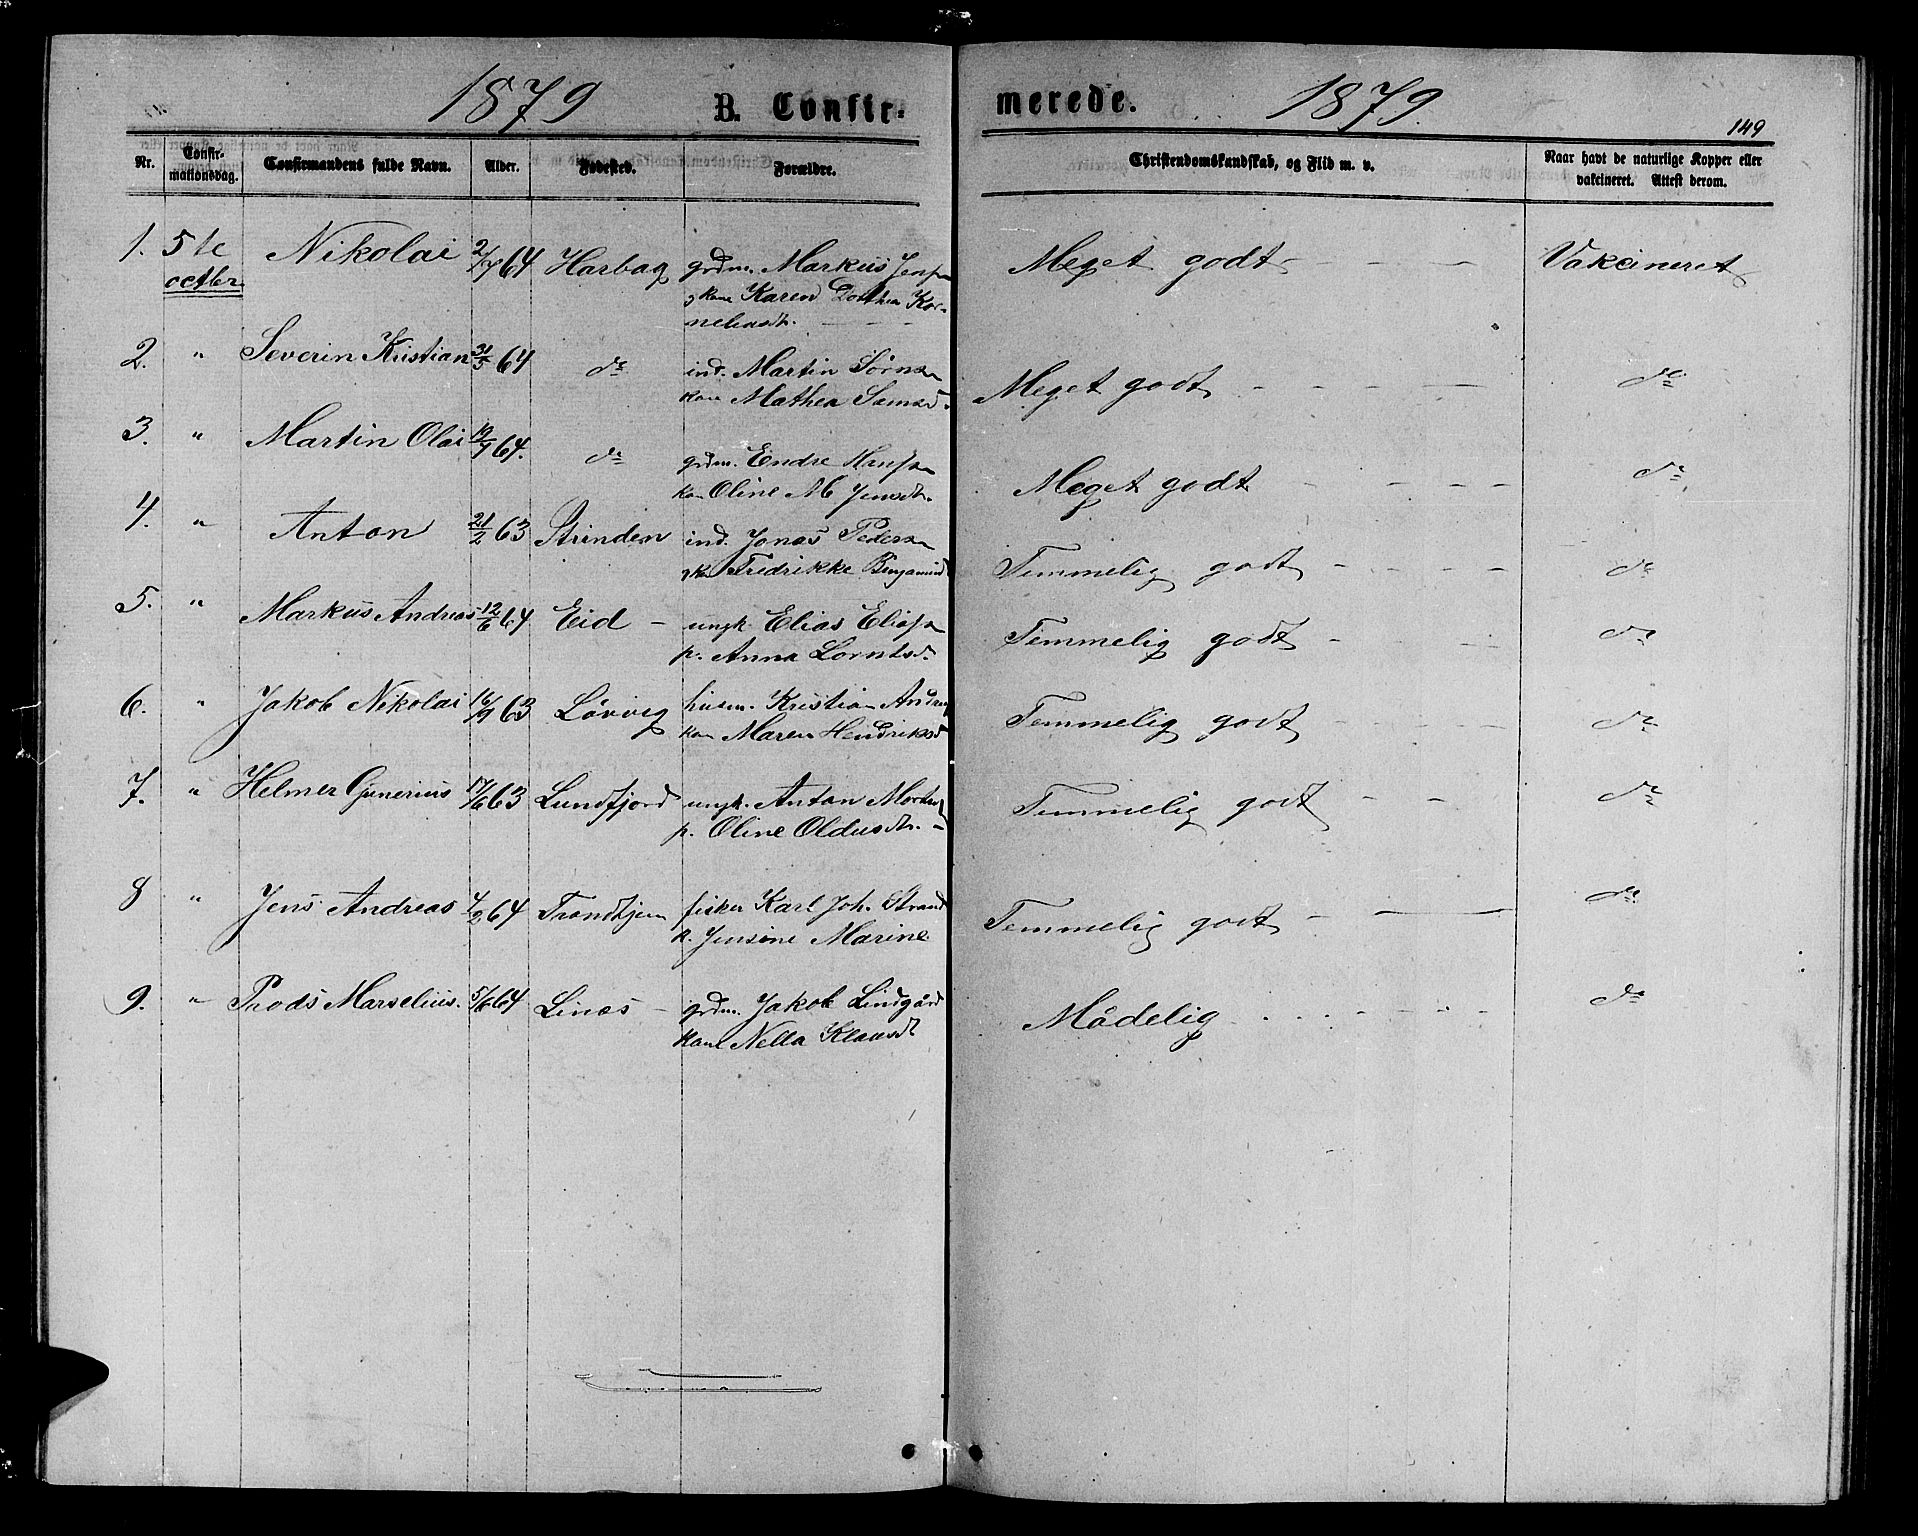 1879 B. Confir-
merede. 1879.
149
Nr. Confir-mationsdag. Confirmandens fulde Navn. Alder. Fødested. Forældre. Christendomskundskab, og Flid m. v. Naar havt de naturlige Kopper eller vakcineret. Attest derom.
1. 5te Nikolai 64 Harbag grdm. Markus Jenss Meget godt Vakcineret
octbr. kone Karen Dorthea Kor-
neliusdt.
2. " Severin Kristian 31/5 64 do ind. Martin Sørns Meget godt do
kone Mathea
3. " Martin Olai 64. do grdm. Endre Hanss Meget godt do
kon Oline M Jensdt.
4. " Anton 21/2 63 Strinden ind. Jonas Peders Temmelig godt do
Fredrikke Benjamind
5. " Markus Andreas 12/6 64 Eid ungk. Elias Eliass Temmelig godt do
p. Anna Lorntsd.
6. " Jakob Nikolai 16/9 63 Løvvig husm. Kristian Andreas Temmelig godt do
kon Maren Hendriksd
7. " Helmer Gunerius 17/6 63 Lundfjord ungk. Anton Temmelig godt do
p. Oline Oldusdt.
8 " Jens Andreas 4/2 64 Trondhjem fisker Karl Joh. Strand Temmelig godt do
k. Jensine Marine
9. " Marselius. 5/6 64 Lines grdm. Jakob Lindgård Mådelig do
kone Nella Klausdt